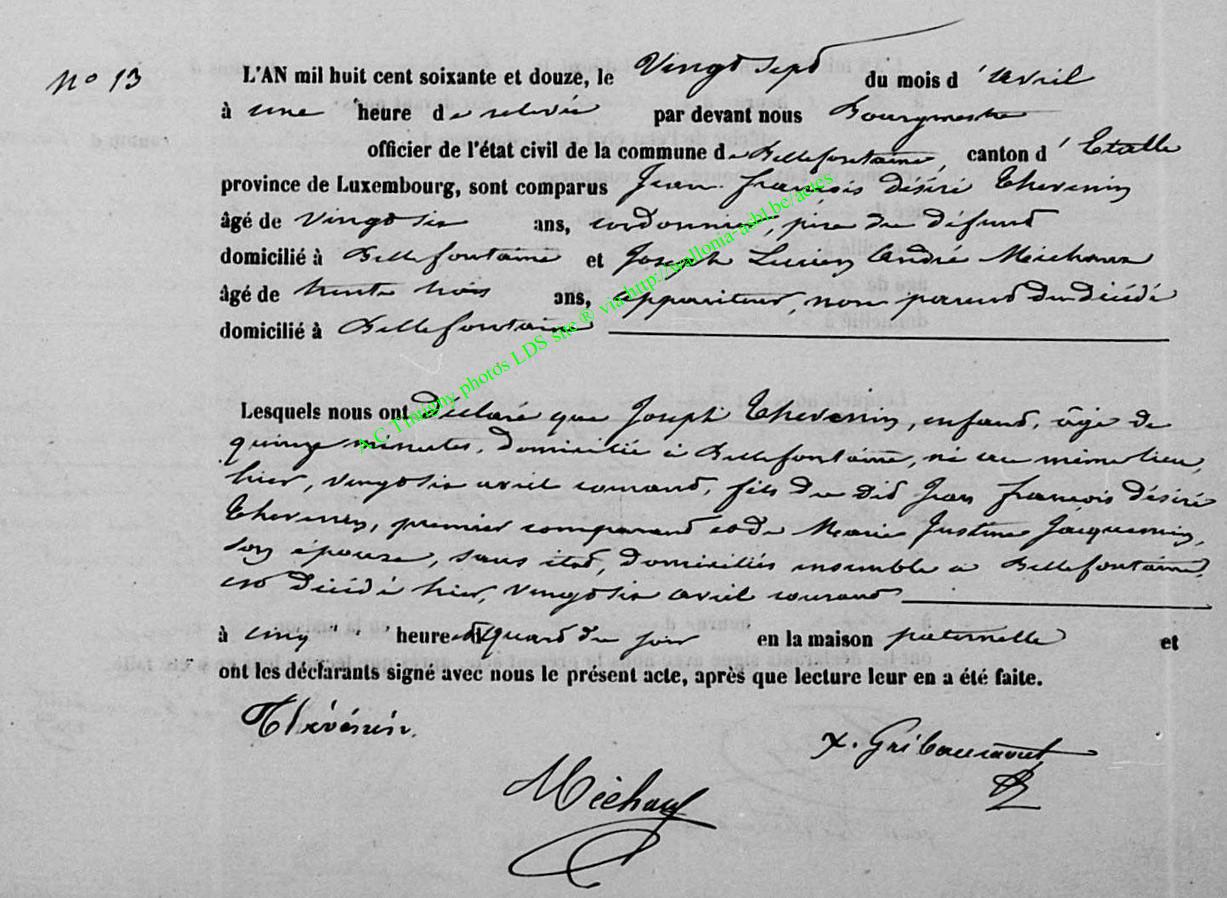 N° 13
L'AN mil huit cent soixante et douze, le Vingt sept du mois d'avril
à une heure de relevée par devant nous Bourgmestre
officier de l'état civil de la commune de Bellefontaine, canton d'Etalle
province de Luxembourg, sont comparus Jean françois désiré Thevenin
âgé de vingt six ans, cordonnier, père du défunt
domicilié à Bellefontaine et Joseph Lucien André Michaux
âgé de trente trois ans, appariteur, non parent du décédé
domicilié à Bellefontaine
Lesquels nous ont déclaré que Joseph Thevenin, enfant, âgé de
quinze minutes, domicilié à Bellefontaine, né au même lieu,
hier, vingt six avril courant, fils du dit Jean françois désiré
Thevenin, premier comparant et de Marie Justine Jacquemin,
son épouse, sans état, domiciliés ensemble à Bellefontaine,
est décédé hier, vingt six avril courant
à cinq heures & quart du soir en la maison paternelle et
ont les déclarants signé avec nous le présent acte, après que lecture leur en a été faite.
Thévénin.
x. Gribaumont
Michaux
A.C Timothy photos LDS site ® via http://wallonia-asbl.be/actes